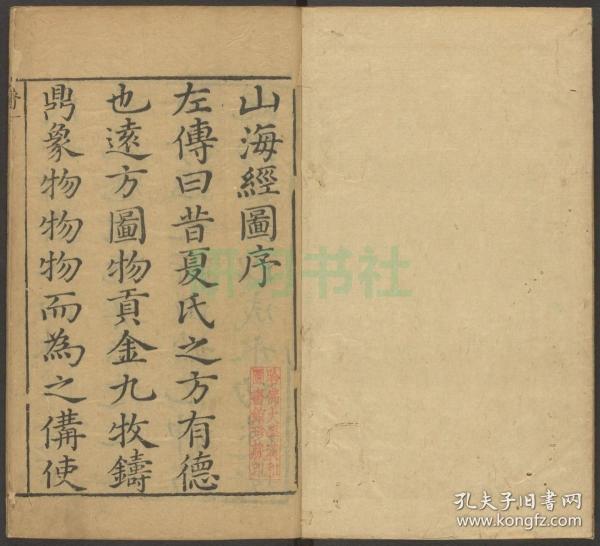 山海經圖序
左傳曰昔夏氏之方有德
也遠方圖物貢金九牧鑄
鼎象物物物而為之備使
书社
孔夫子旧书网
www.kongfz.com